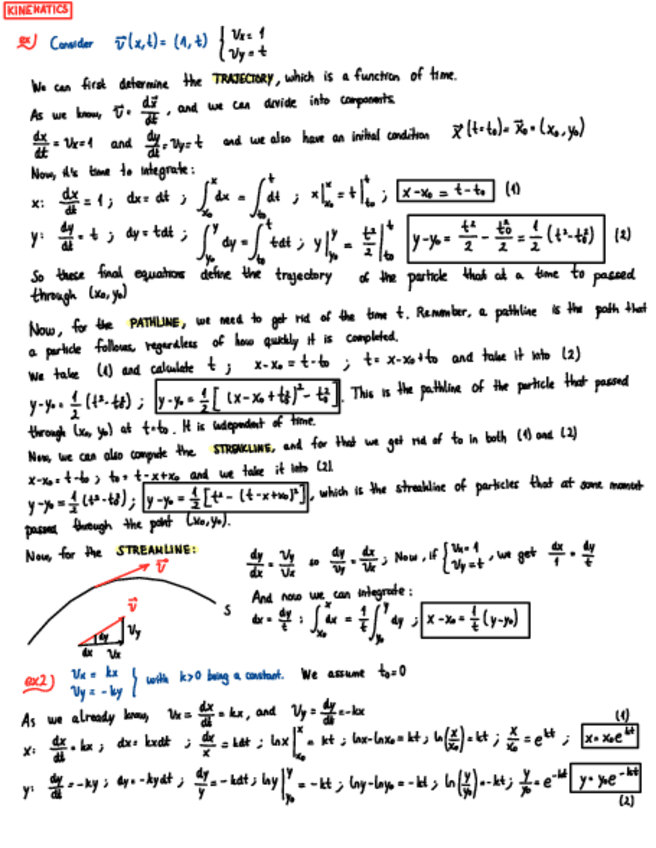 KINEMATICS
ex) Consider v⃗(x,t) = (1, t) { Vx = 1
Vy = t
We can first determine the TRAJECTORY, which is a function of time.
As we know, v⃗ = dx⃗/dt, and we can divide into components.
dx/dt = Vx = 1 and dy/dt = Vy = t and we also have an initial condition x⃗(t=t₀) = x⃗₀ = (x₀, y₀)
Now, it's time to integrate:
x: dx/dt = 1 ; dx = dt ; ∫_{x₀}^{x} dx = ∫_{t₀}^{t} dt ; x|_{x₀}^{x} = t|_{t₀}^{t} ; x-x₀ = t-t₀ (1)
y: dy/dt = t ; dy = tdt ; ∫_{y₀}^{y} dy = ∫_{t₀}^{t} tdt ; y|_{y₀}^{y} = t²/2|_{t₀}^{t} y-y₀ = t²/2 - t₀²/2 = 1/2 (t²-t₀²) (2)
So these final equations define the trajectory of the particle that at a time to passed
through (x₀, y₀)
Now, for the PATHLINE, we need to get rid of the time t. Remember, a pathline is the path that
a particle follows, regardless of how quickly it is completed.
We take (1) and calculate t ; x-x₀ = t-t₀ ; t = x-x₀+t₀ and take it into (2)
y-y₀ = 1/2 (t²-t₀²) ; y-y₀ = 1/2 [(x-x₀+t₀)² - t₀²]. This is the pathline of the particle that passed
through (x₀, y₀) at t=t₀. It is independent of time.
Now, we can also compute the STREAKLINE, and for that we get rid of to in both (1) and (2)
x-x₀ = t-t₀ ; t₀ = t-x+x₀ and we take it into (2).
y-y₀ = 1/2 (t²-t₀²) ; y-y₀ = 1/2 [t² - (t-x+x₀)²], which is the streakline of particles that at some moment
passed through the point (x₀, y₀).
Now, for the STREAMLINE:
dy/dx = Vy/Vx so dy/Vy = dx/Vx ; Now, if { Vx = 1
Vy = t , we get dx/1 = dy/t
And now we can integrate:
dx = dy/t ; ∫_{x₀}^{x} dx = 1/t ∫_{y₀}^{y} dy ; x-x₀ = 1/t (y-y₀)
v⃗
S
v⃗
Vy
dy
dx Vx
ex2) Vx = kx
Vy = -ky } with k>0 being a constant. We assume t₀=0
As we already know, Vx = dx/dt = kx, and Vy = dy/dt = -kx
x: dx/dt = kx ; dx = kxdt ; dx/x = kdt ; lnx|_{x₀}^{x} = kt ; lnx-lnx₀ = kt ; ln(x/x₀) = kt ; x/x₀ = e^{kt} ; x = x₀e^{kt} (1)
y: dy/dt = -ky ; dy = -kydt ; dy/y = -kdt ; lny|_{y₀}^{y} = -kt ; lny-lny₀ = -kt ; ln(y/y₀) = -kt ; y/y₀ = e^{-kt} y = y₀e^{-kt} (2)